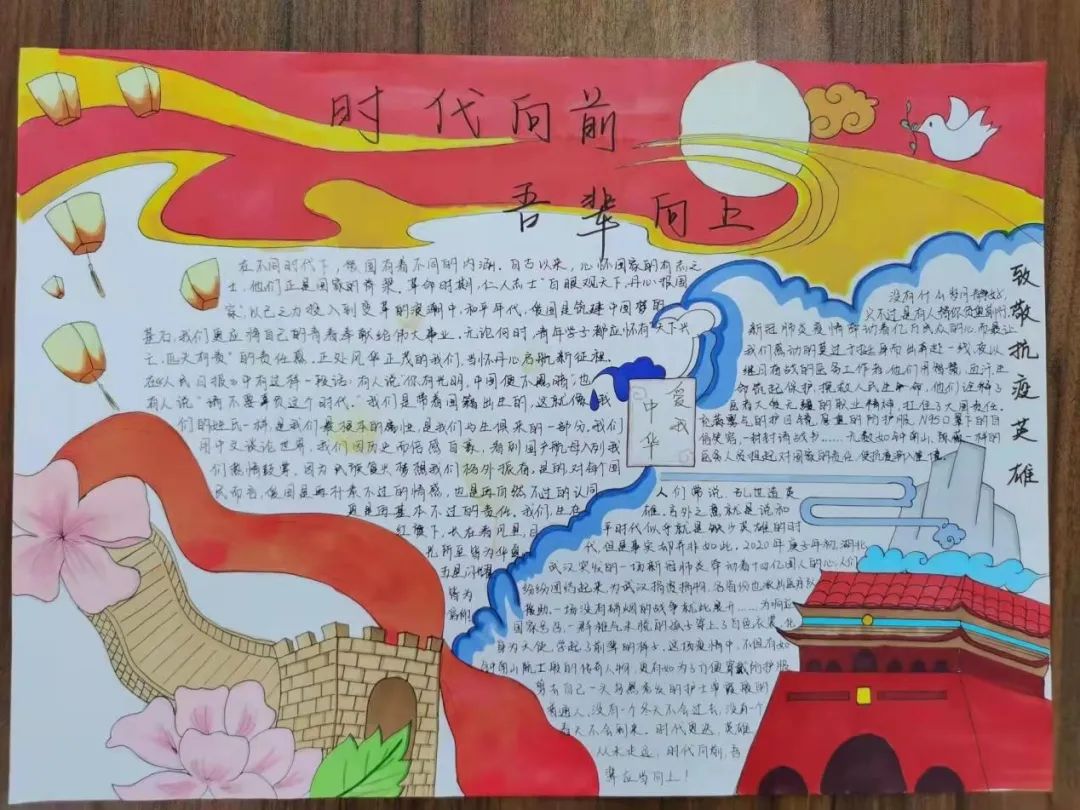 时代向前
吾辈向上
在不同时代下，爱国有着不同的内涵。自古以来，心怀国家的有志之
士，他们正是国家的脊梁。革命时期，仁人志士"白眼观天下，丹心报国
家"，以己之力投入到变革的浪潮中，和平年代，爱国是筑建中国梦的
基石，我们更应将自己的青春奉献给伟大事业。无论何时，青年学子都应怀有"天下兴
亡，匹夫有责"的责任感。正处风华正茂的我们，当怀丹心启航新征程。
在《人民日报》中有这样一段话：有人说"你有光明，中国便不黑暗"；也
有人说"请不要辜负这个时代。"我们是带着国籍出生的，这就像我
们的姓氏一样，是我们最根本的属性，是我们与生俱来的一部分。我们
用中文谈论世界，我们因历史而倍感自豪，看到国产航母入列我
们激情
民而言，爱国是再朴素不过的情感，也是再自然不过的认同
更是再基本不过的责任。我们，生在
红旗下，长在春风里，目
光所至皆为华夏
五星闪耀
皆为
信仰！
爱我
中华
致敬抗疫英雄
没有什么岁月静好，
只不过是有人替你负重前行。
新冠肺炎疫情牵动着亿万民众的心，而最让
我们感动的莫过于挺身而出奔赴一线，夜以
继日奋战的医务工作者，他们用
命筑起保护、拯救人民生命，他们诠释了
医者大爱无疆的职业精神，扛住了大国责任。
充满雾气的护目镜，厚重的防护服，N95口罩下的自
信笑容，一封封请战书……无数如钟南山、陈薇一样的
医务人员担起对国家的责任，使抗疫渐入佳境。
人们常说，乱世造英
雄，言外之意就是说和
平时代似乎就是缺少英雄的时
代，但是事实却并非如此，2020年庚子年初，湖北
武汉突发的一场新冠肺炎牵动着十四亿国人的心，人们
纷纷团结起来，为武汉捐资捐物，各省份也派出医疗队
援助，一场没有硝烟的战争就此展开……为响应
国家号召，一群稚气未脱的孩子穿上了白色衣裳，化
身为天使，学起了前辈的样子，这场疫情中，不但有如
钟南山院士般的传奇人物，更有如为了方便穿戴防护服
剪去自己一头乌黑秀发的护士单霞般的
普通人，没有一个冬天不会过去，没有一个
春天不会到来。时代更迭，英雄
从未走远，时代向前，吾
辈应当向上！